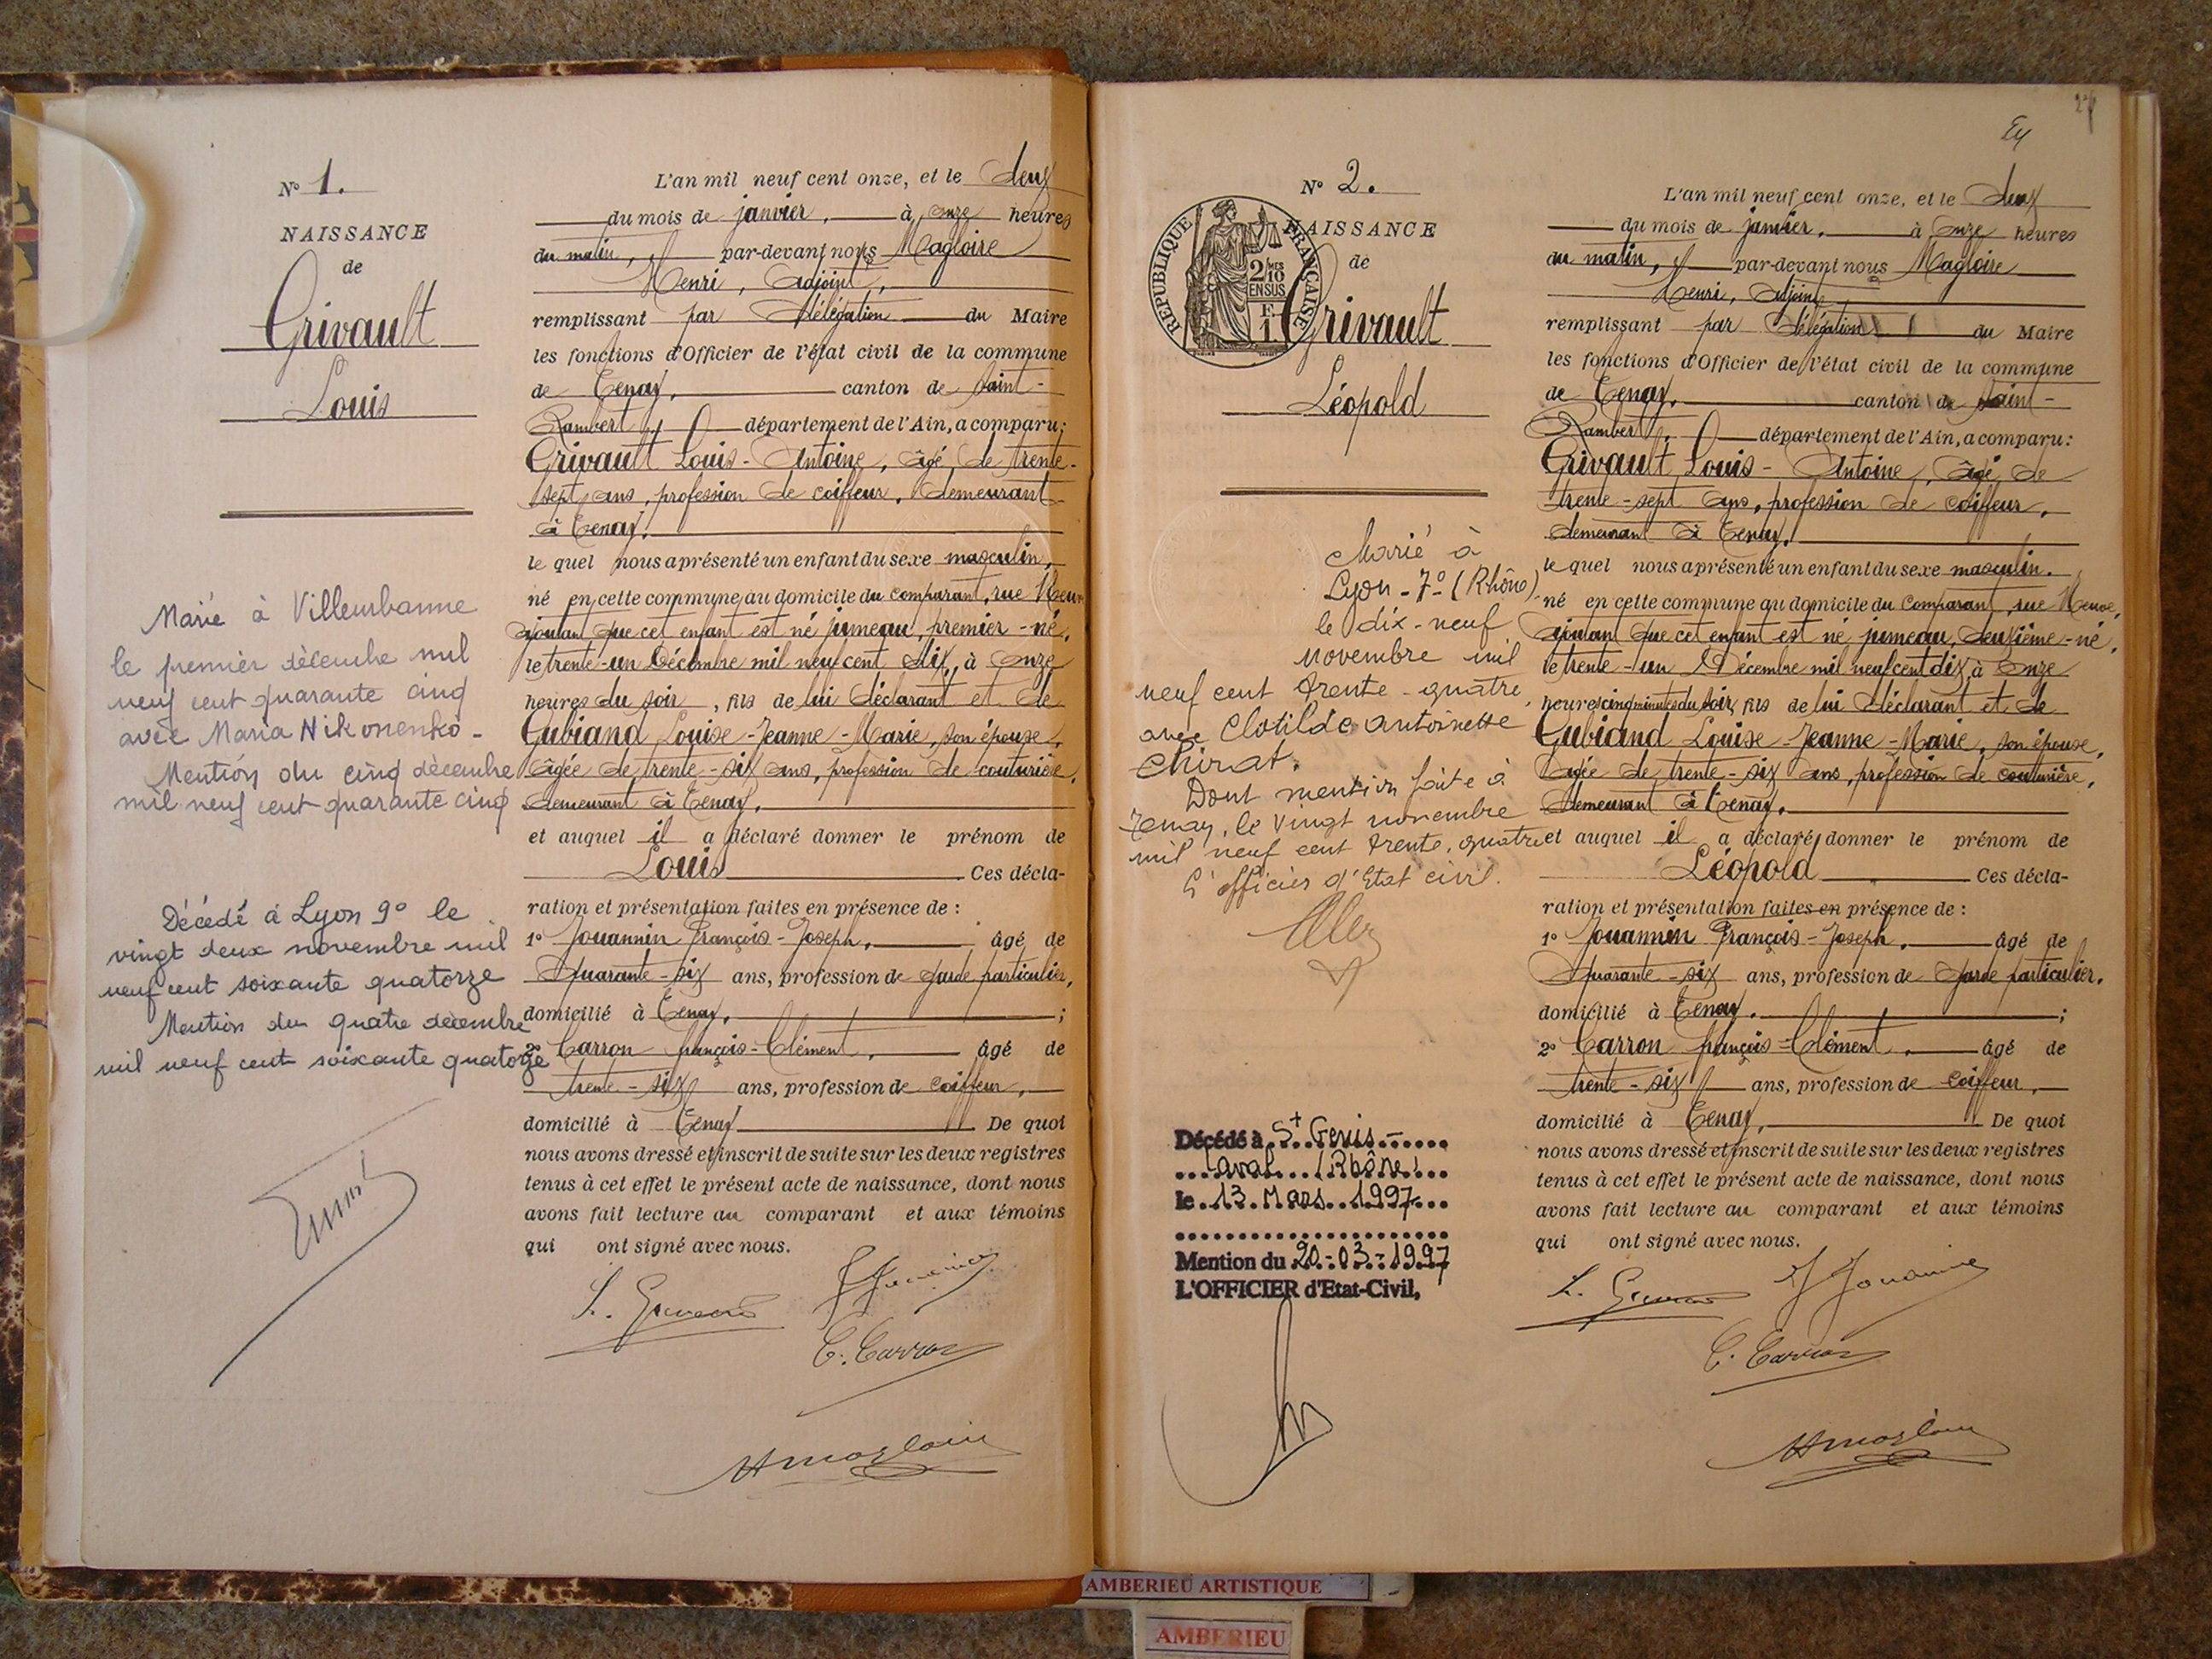 N° 1.
NAISSANCE
de
Grivault
Louis
Marié à Villeurbanne
le premier décembre mil
neuf cent quarante cinq
avec Maria Nikonenko -
Mention du cinq décembre
mil neuf cent quarante cinq
Décédé à Lyon 9° le
vingt deux novembre mil
neuf cent soixante quatorze
Mention du quatre décembre
mil neuf cent soixante quatorze
L'an mil neuf cent onze, et le deux
du mois de janvier, à onze heures
du matin, par-devant nous Magloire
Henri, adjoint,
remplissant par délégation du Maire
les fonctions d'Officier de l'état civil de la commune
de Tenay, canton de Saint-
Rambert, département de l'Ain, a comparu:
Grivault Louis-Antoine, âgé de trente-
sept ans, profession de coiffeur, demeurant
à Tenay,
le quel nous a présenté un enfant du sexe masculin,
né en cette commune au domicile du comparant, rue Neuve
ajoutant que cet enfant est né jumeau, premier-né,
le trente-un Décembre mil neuf cent dix, à onze
heures du soir, fils de lui déclarant et de
Gubiand Louise-Jeanne-Marie, son épouse,
âgée de trente-six ans, profession de couturière,
demeurant à Tenay,
et auquel il a déclaré donner le prénom de
Louis Ces décla-
ration et présentation faites en présence de :
1° Jouannin François-Joseph, âgé de
quarante-six ans, profession de garde particulier,
domicilié à Tenay, ;
2° Carron François-Clément, âgé de
trente-six ans, profession de coiffeur,
domicilié à Tenay De quoi
nous avons dressé et inscrit de suite sur les deux registres
tenus à cet effet le présent acte de naissance, dont nous
avons fait lecture au comparant et aux témoins
qui ont signé avec nous.
C. Carron
24
N° 2.
NAISSANCE
de
RÉPUBLIQUE FRANÇAISE
2/10 MES
EN SUS
Grivault
Léopold
Marié à
Lyon-7° (Rhône)
le dix-neuf
novembre mil
neuf cent trente-quatre,
avec Clotilde Antoinette
Chirat.
Dont mention faite à
Tenay, le vingt novembre
mil neuf cent trente-quatre
L'officier d'Etat civil.
Décédé à St Genis-
Laval (Rhône)
le 13 Mars 1997
Mention du 20-03-1997
L'OFFICIER d'Etat-Civil,
L'an mil neuf cent onze, et le deux
du mois de janvier, à onze heures
du matin, par-devant nous Magloire
Henri, adjoint
remplissant par délégation du Maire
les fonctions d'Officier de l'état civil de la commune
de Tenay, canton de Saint-
Rambert, département de l'Ain, a comparu:
Grivault Louis-Antoine, âgé de
trente-sept ans, profession de coiffeur,
demeurant à Tenay,
le quel nous a présenté un enfant du sexe masculin.
né en cette commune au domicile du comparant, rue Neuve,
ajoutant que cet enfant est né jumeau, deuxième-né,
le trente-un Décembre mil neuf cent dix, à onze
heures cinq minutes du soir, fils de lui déclarant et de
Gubiand Louise-Jeanne-Marie, son épouse,
âgée de trente-six ans, profession de couturière,
demeurant à Tenay,
et auquel il a déclaré donner le prénom de
Léopold Ces décla-
ration et présentation faites en présence de :
1° Jouannin François-Joseph, âgé de
quarante-six ans, profession de garde particulier,
domicilié à Tenay. ;
2° Carron François-Clément, âgé de
trente-six ans, profession de coiffeur,
domicilié à Tenay, De quoi
nous avons dressé et inscrit de suite sur les deux registres
tenus à cet effet le présent acte de naissance, dont nous
avons fait lecture au comparant et aux témoins
qui ont signé avec nous.
J Jouannin
C. Carron
AMBERIEU ARTISTIQUE
AMBERIEU